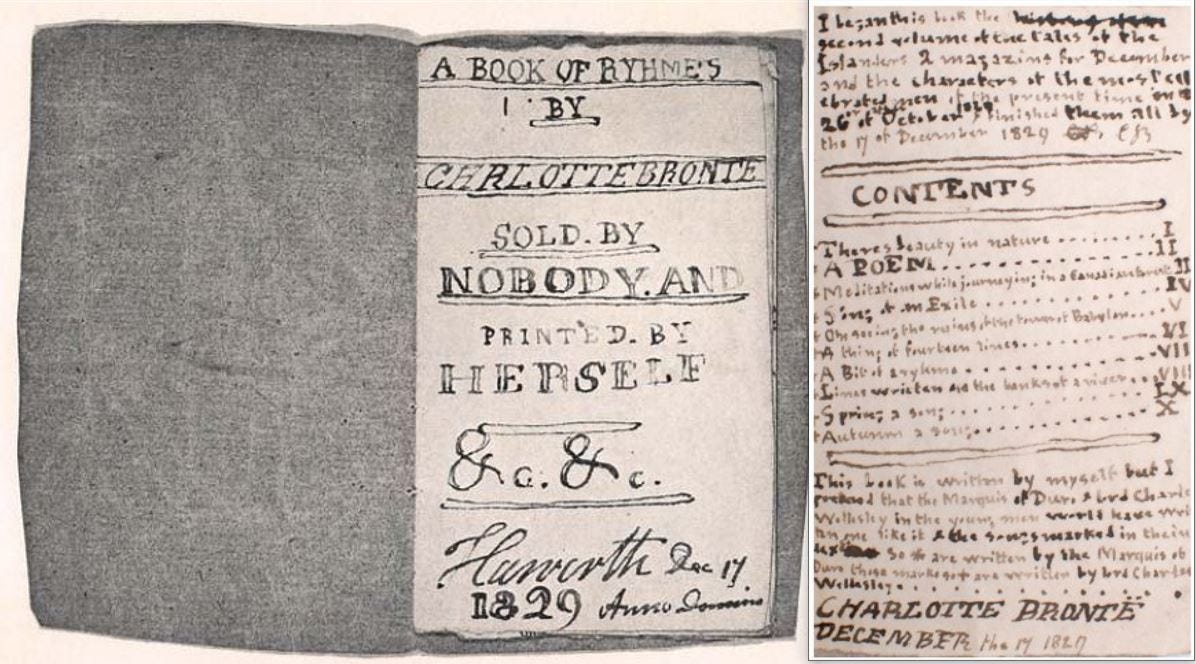 A BOOK OF RYHME'S
BY
CHARLOTTE BRONTE
SOLD. BY
NOBODY. AND
PRINTED. BY
HERSELF
&c. &c.
Haworth Dec 17
1829 Anno Domini
I began this book the
second volume of the tales of the
Islanders 2 magazins for December
and the characters of the most cel
ebrated men of the present time on
26 of October 1829 finished them all by
the 17 of December 1829 CB
CONTENTS
Theres beauty in nature I
A POEM II
Meditations while journeying in a Canadian forest
Song of an Exile IV
On seeing the ruines of the tower of Babylon V
A thing of fourteen lines VI
A Bit of a ryhme VII
Lines wrietten on the banks of a river VIII
Spring a song IX
Autumn a song X
This book is written by myself but I
pretend that the Marquis of Duro & lord Charle
Wellesley in the young men world have
one like it & the songs marked in the
so * are written by the Marquis of
Duro those marked so + are written by lord Charles
Wellesley
CHARLOTTE BRONTË
DECEMBER the 17